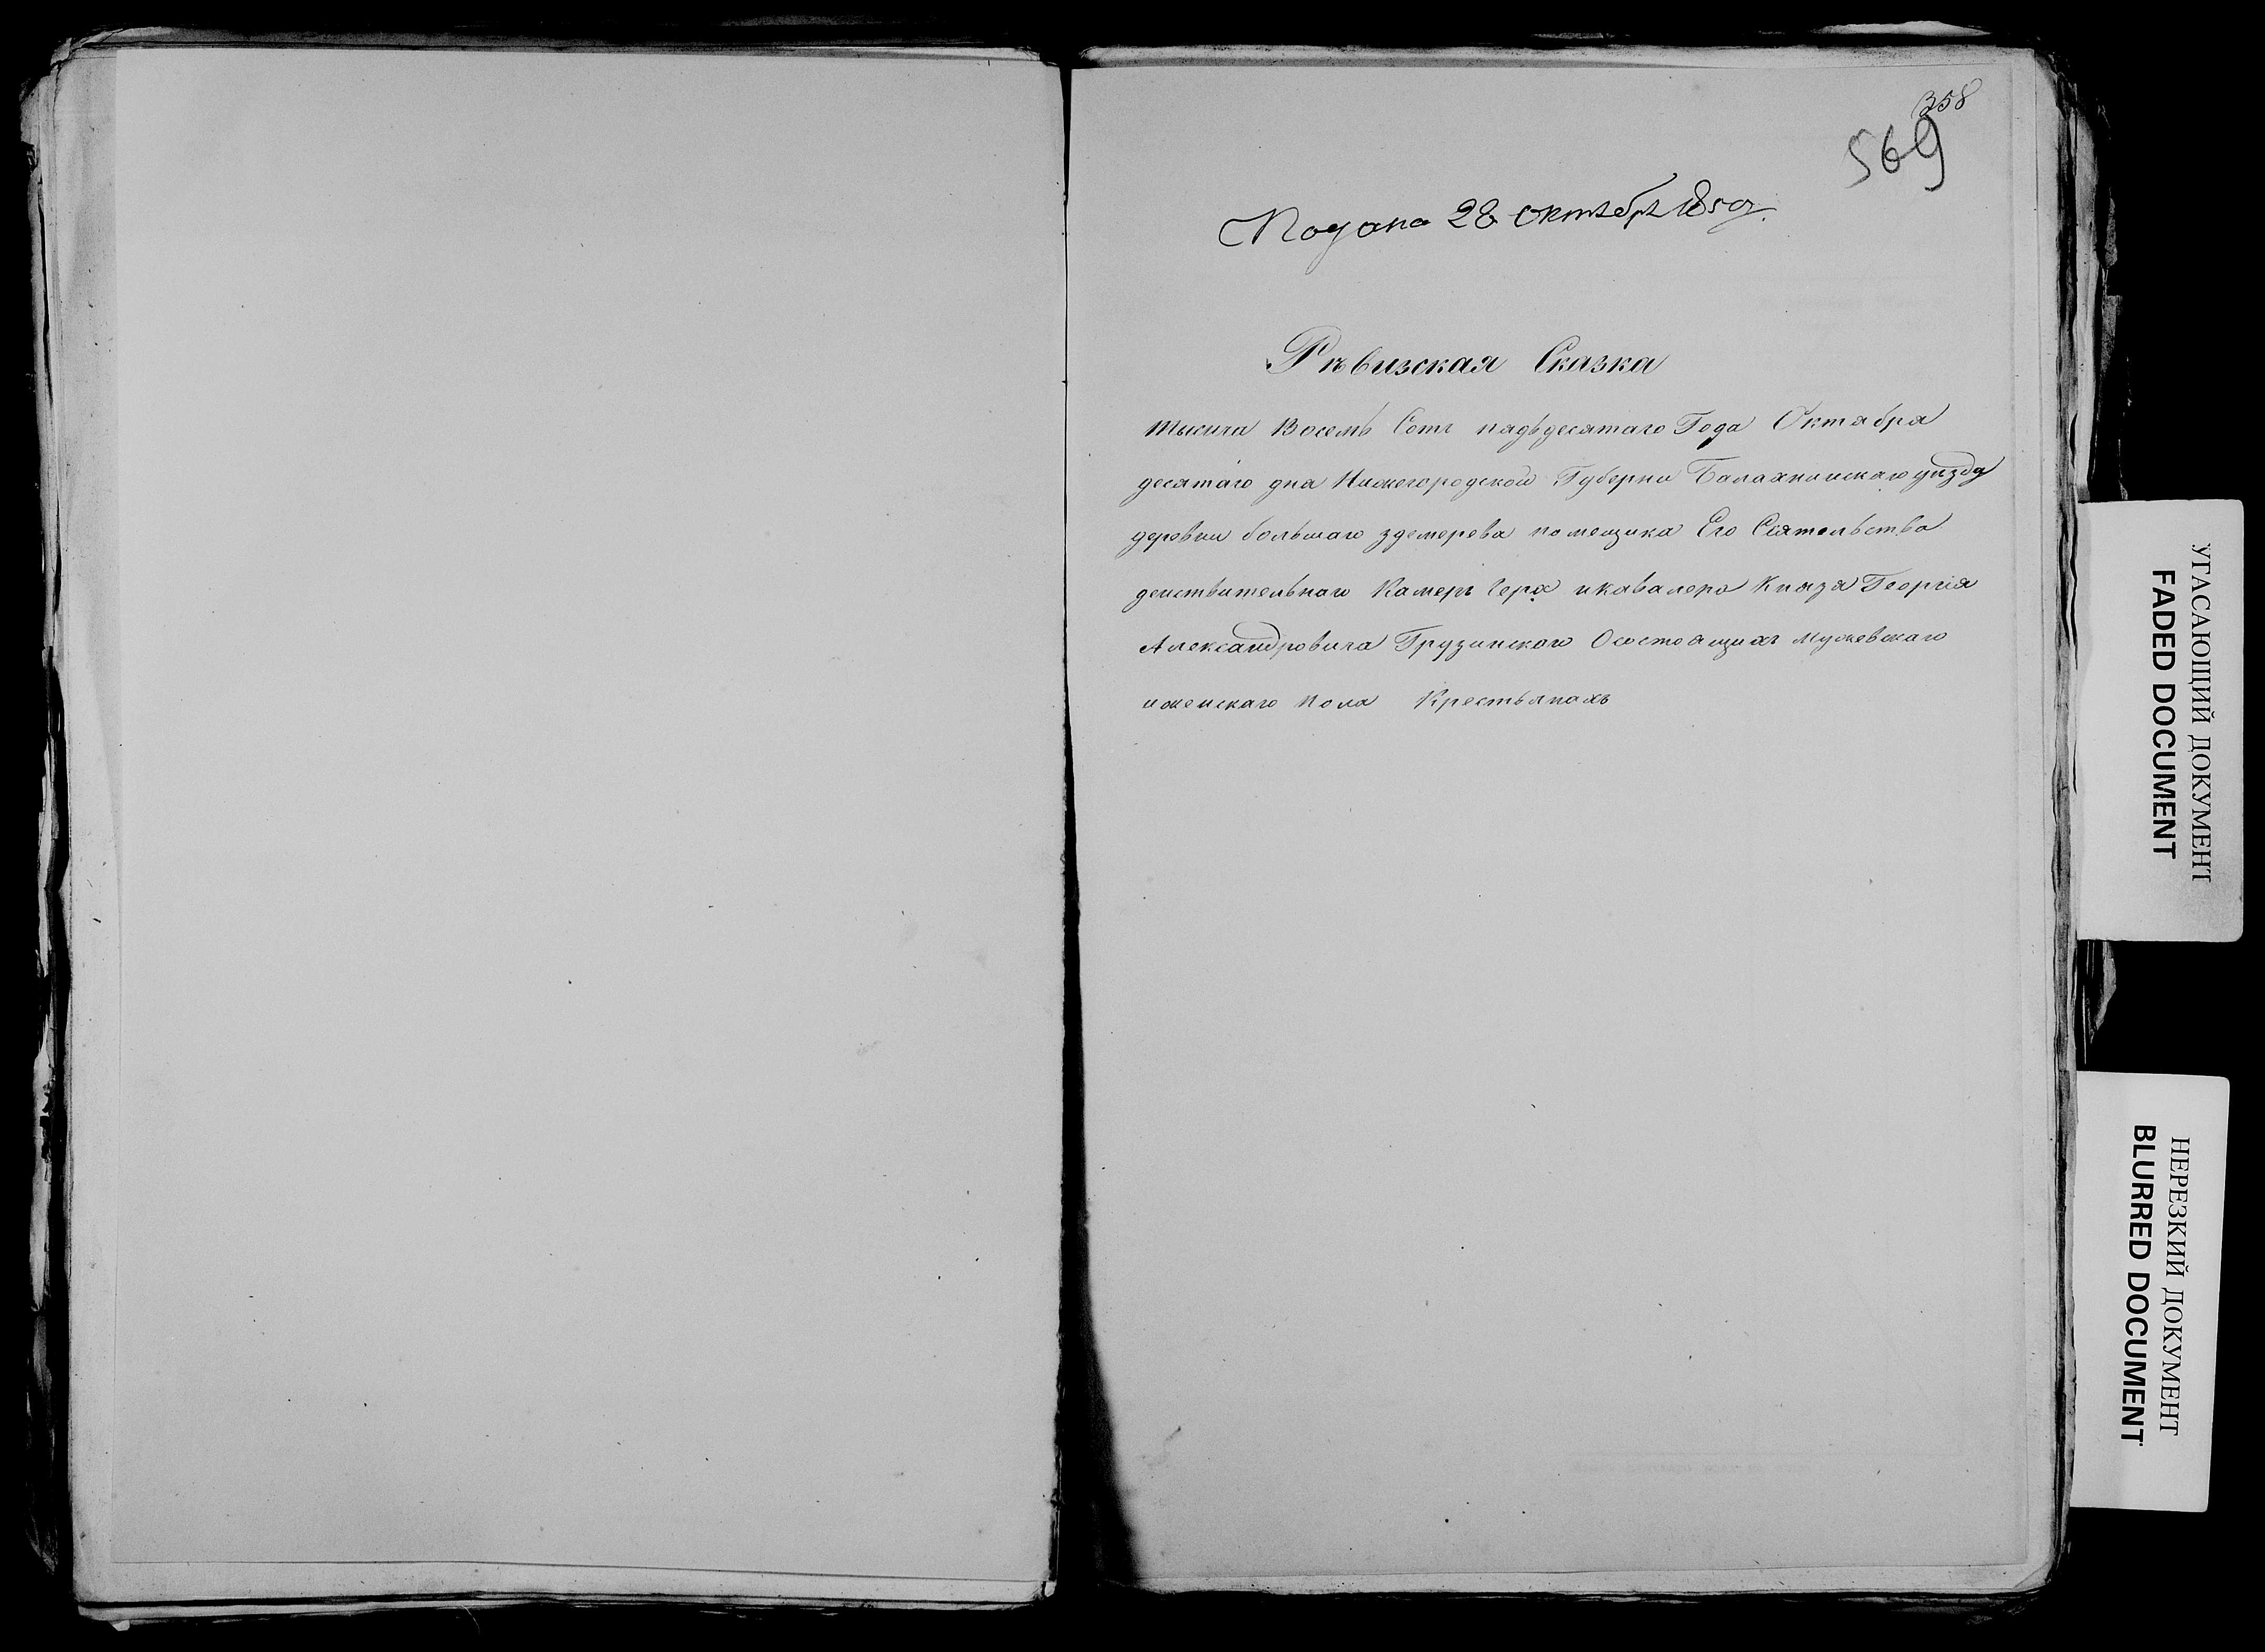 358
569
Подана 28 октября 1850 г.
Рѣвизская Сказка
тысича Восемь Сотъ пядьдесятаго Года Октября
десятаго дня Нижегородской Губерни Балахнинскаго уѣзда
деревни большаго здемерева помещика Его Сиятельства
деиствительнаго Камеръ гера икавалера Князя Георгія
Александровича Грузинскаго Осостоящихъ мужевскаго
иженскаго пола Крестьянахъ
УГАСАЮЩИЙ ДОКУМЕНТ
FADED DOCUMENT
НЕРЕЗКИЙ ДОКУМЕНТ
BLURRED DOCUMENT